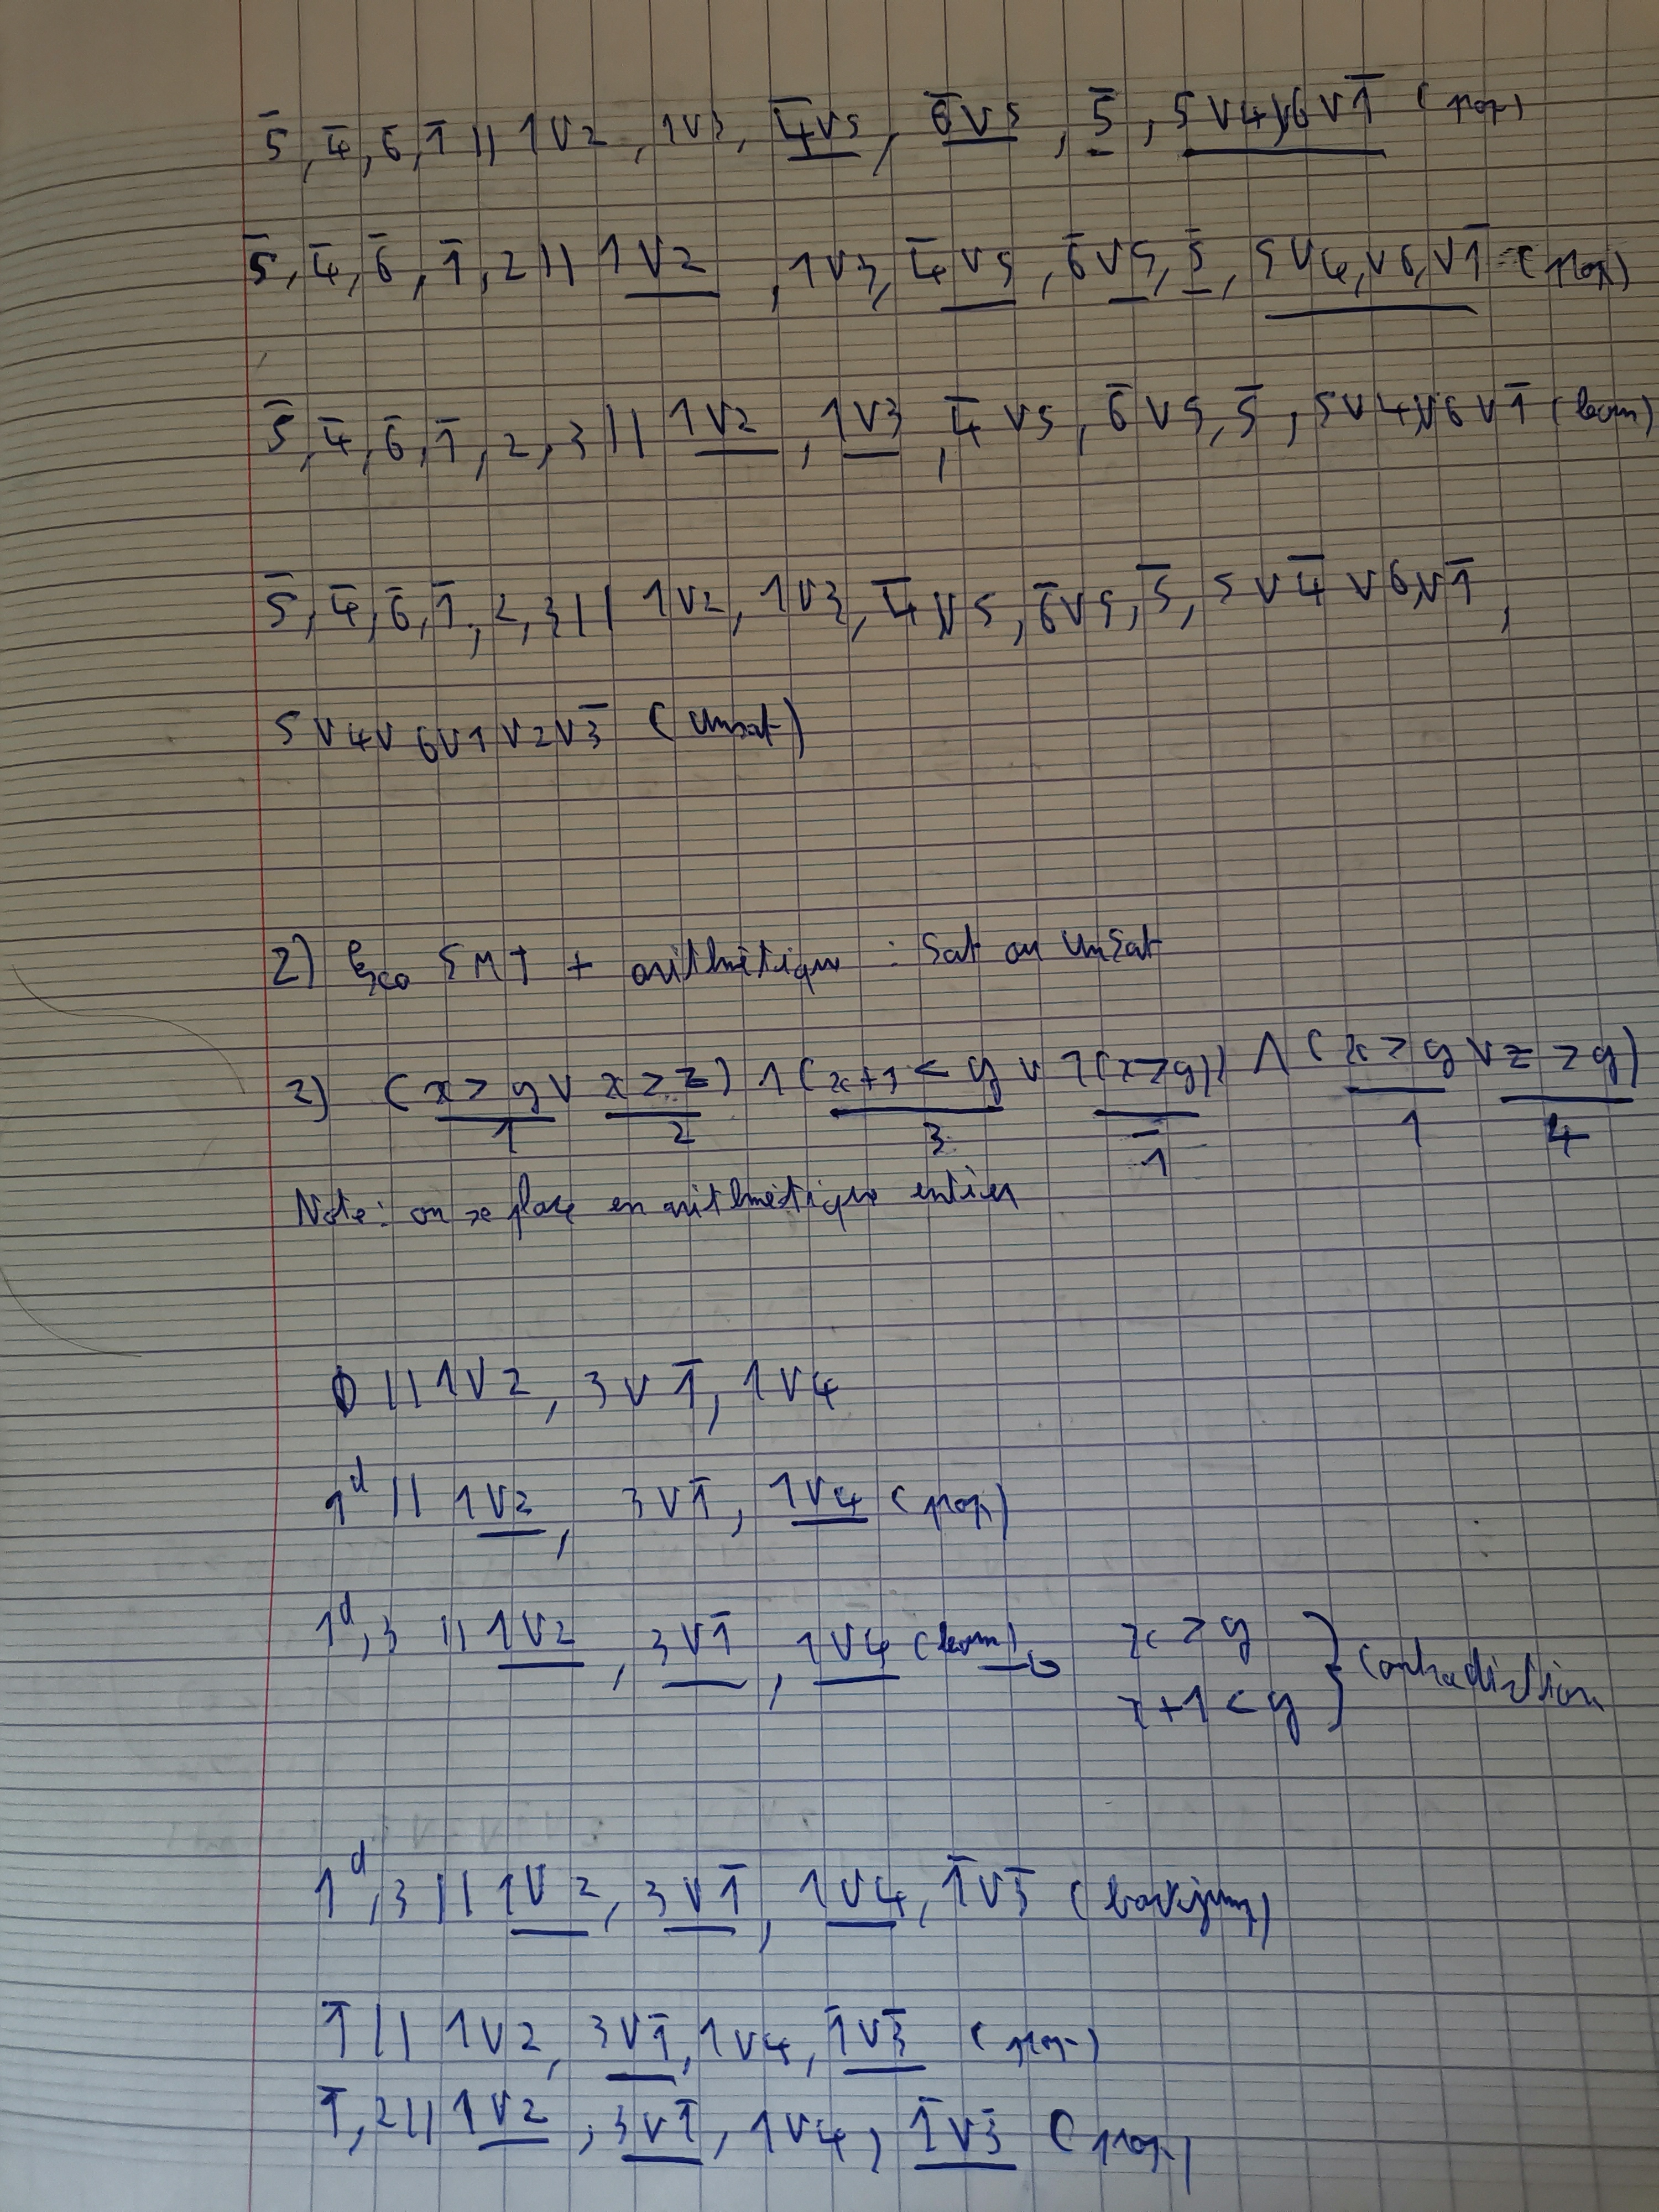 5̅, 4̅, 6̅, 1̅ || 1V2, 1V3, 4̅V5, 6̅V5, 5̅, 5V4V6V1̅ (prop)
5̅, 4̅, 6̅, 1̅, 2 || 1V2, 1V3, 4̅V5, 6̅V5, 5̅, 5V4,V6,V1̅ (prop)
5̅, 4̅, 6̅, 1̅, 2, 3 || 1V2, 1V3, 4̅V5, 6̅V5, 5̅, 5V4V6V1̅ (learn)
5̅, 4̅, 6̅, 1̅, 2, 3 || 1V2, 1V3, 4̅V5, 6̅V5, 5̅, 5V4̅V6V1̅,
5V4V6V1V2V3̅ (Unsat)
2) Exo SMT + arithmétique : Sat ou UnSat
2) (x > y V x > z) ∧ (x+1 < y V ¬(x>y)) ∧ (x > y V z > y)
1 2 3 1̅ 1 4
Note: on se place en arithmétique entier
∅ || 1V2, 3V1̅, 1V4
1ᵈ || 1V2, 3V1̅, 1V4 (prop)
1ᵈ, 3 || 1V2, 3V1̅, 1V4 (learn) → x > y
x+1 < y } Contradiction
1ᵈ, 3 || 1V2, 3V1̅, 1V4, 1̅V3̅ (backjump)
1̅ || 1V2, 3V1̅, 1V4, 1̅V3̅ (prop)
1̅, 2 || 1V2, 3V1̅, 1V4, 1̅V3̅ (prop)